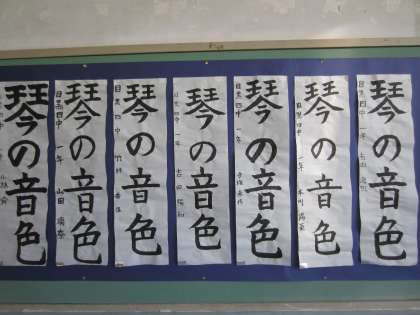 琴の音色
琴の音色
目黒四中 一年 山田
琴の音色
目黒四中
琴の音色
目黒四中 一年 吉田
琴の音色
目黒四中 一年
琴の音色
目黒四中 一年
琴の音色
目黒四中 一年